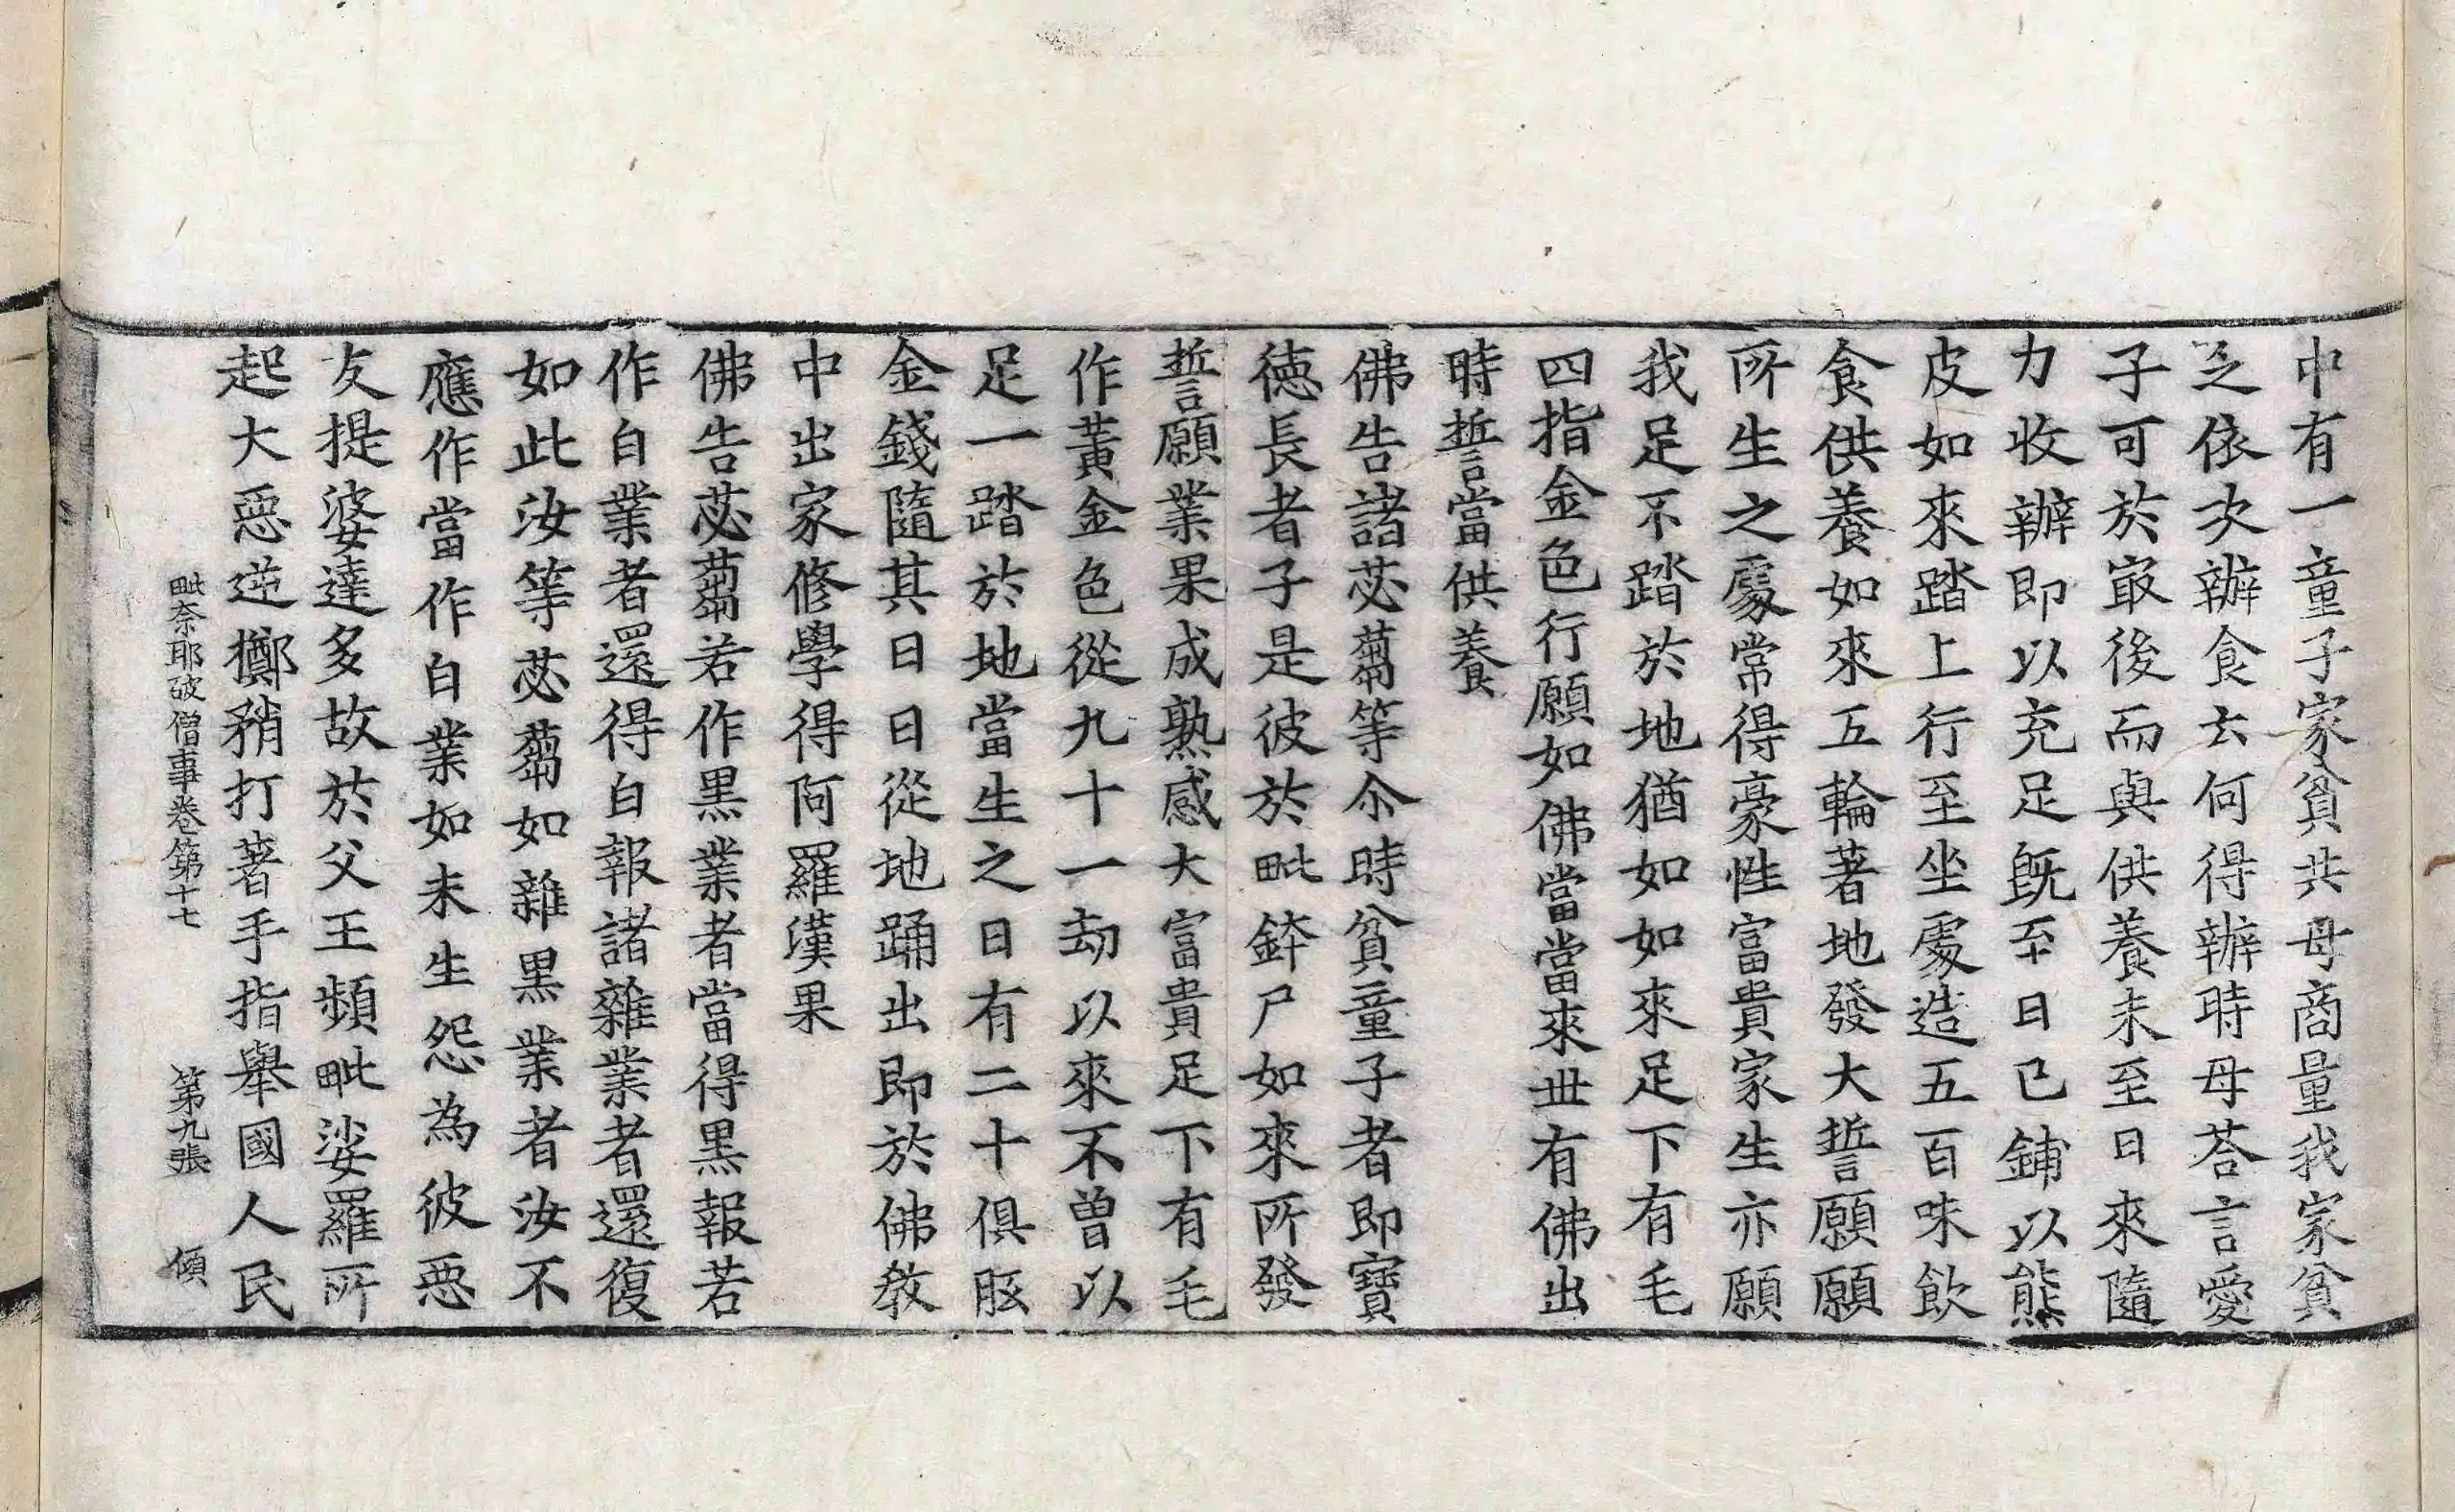 中有一童子家貧共母商量我家貧
乏依次辦食去何得辦時母荅言愛
子可於㝡後而與供養未至日來隨
力收辦即以充足旣至日已鋪以熊
皮如來踏上行至坐處造五百味飲
食供養如來五輪著地發大誓願願
所生之處常得豪性富貴家生亦願
我足不踏於地猶如如來足下有毛
四指金色行願如佛當當來丗有佛出
時誓當供養
佛告諸苾蒭等尒時貧童子者即寶
徳長者子是彼於毗鉢尸如來所發
誓願業果成熟感大富貴足下有毛
作黃金色從九十一劫以來不曽以
足一踏於地當生之日有二十俱胝
金錢隨其日日從地踊出即於佛教
中出家修學得阿羅漢果
佛告苾蒭若作黒業者當得黒報若
作白業者還得白報諸雜業者還復
如此汝等苾蒭如雜黒業者汝不
應作當作白業如未生怨為彼惡
友提婆達多故於父王頻毗娑羅所
起大惡逆擲矟打著手指舉國人民
毗奈耶破僧事卷第十七 第九張 傾